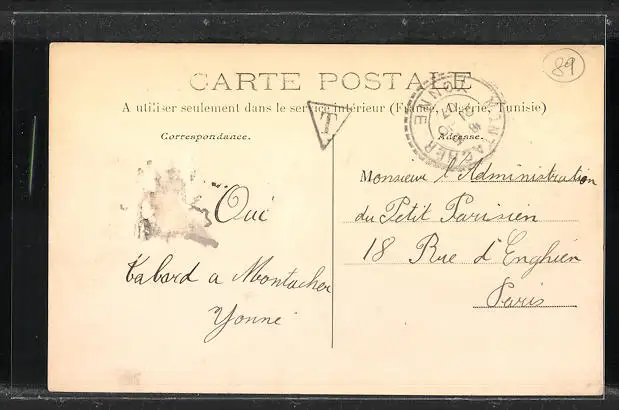 89
CARTE POSTALE
A utiliser seulement dans le service intérieur (France, Algérie, Tunisie)
T
MONTACHER YONNE
Correspondance.
Adresse.
Oui
Tabard a Montacher
Yonne
Monsieur l'Administration
du Petit Parisien
18 Rue d'Enghien
Paris